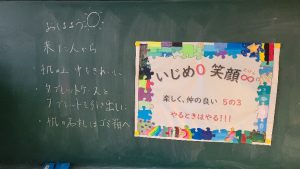 おはようございます
来た人から
・机の上 中をきれいに
・タブレットケースと
タブレットを引き出しに
・机の名札はゴミ箱へ
いじめ0 笑顔∞
楽しく、仲の良い 5の3
やるときはやる!!!